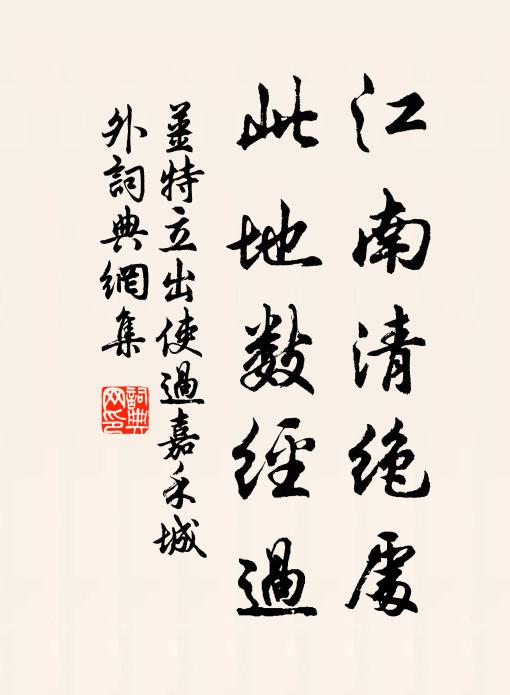 江南清绝處
此地数經過
姜特立出使過嘉禾城
外詞典網集
詞典
网印